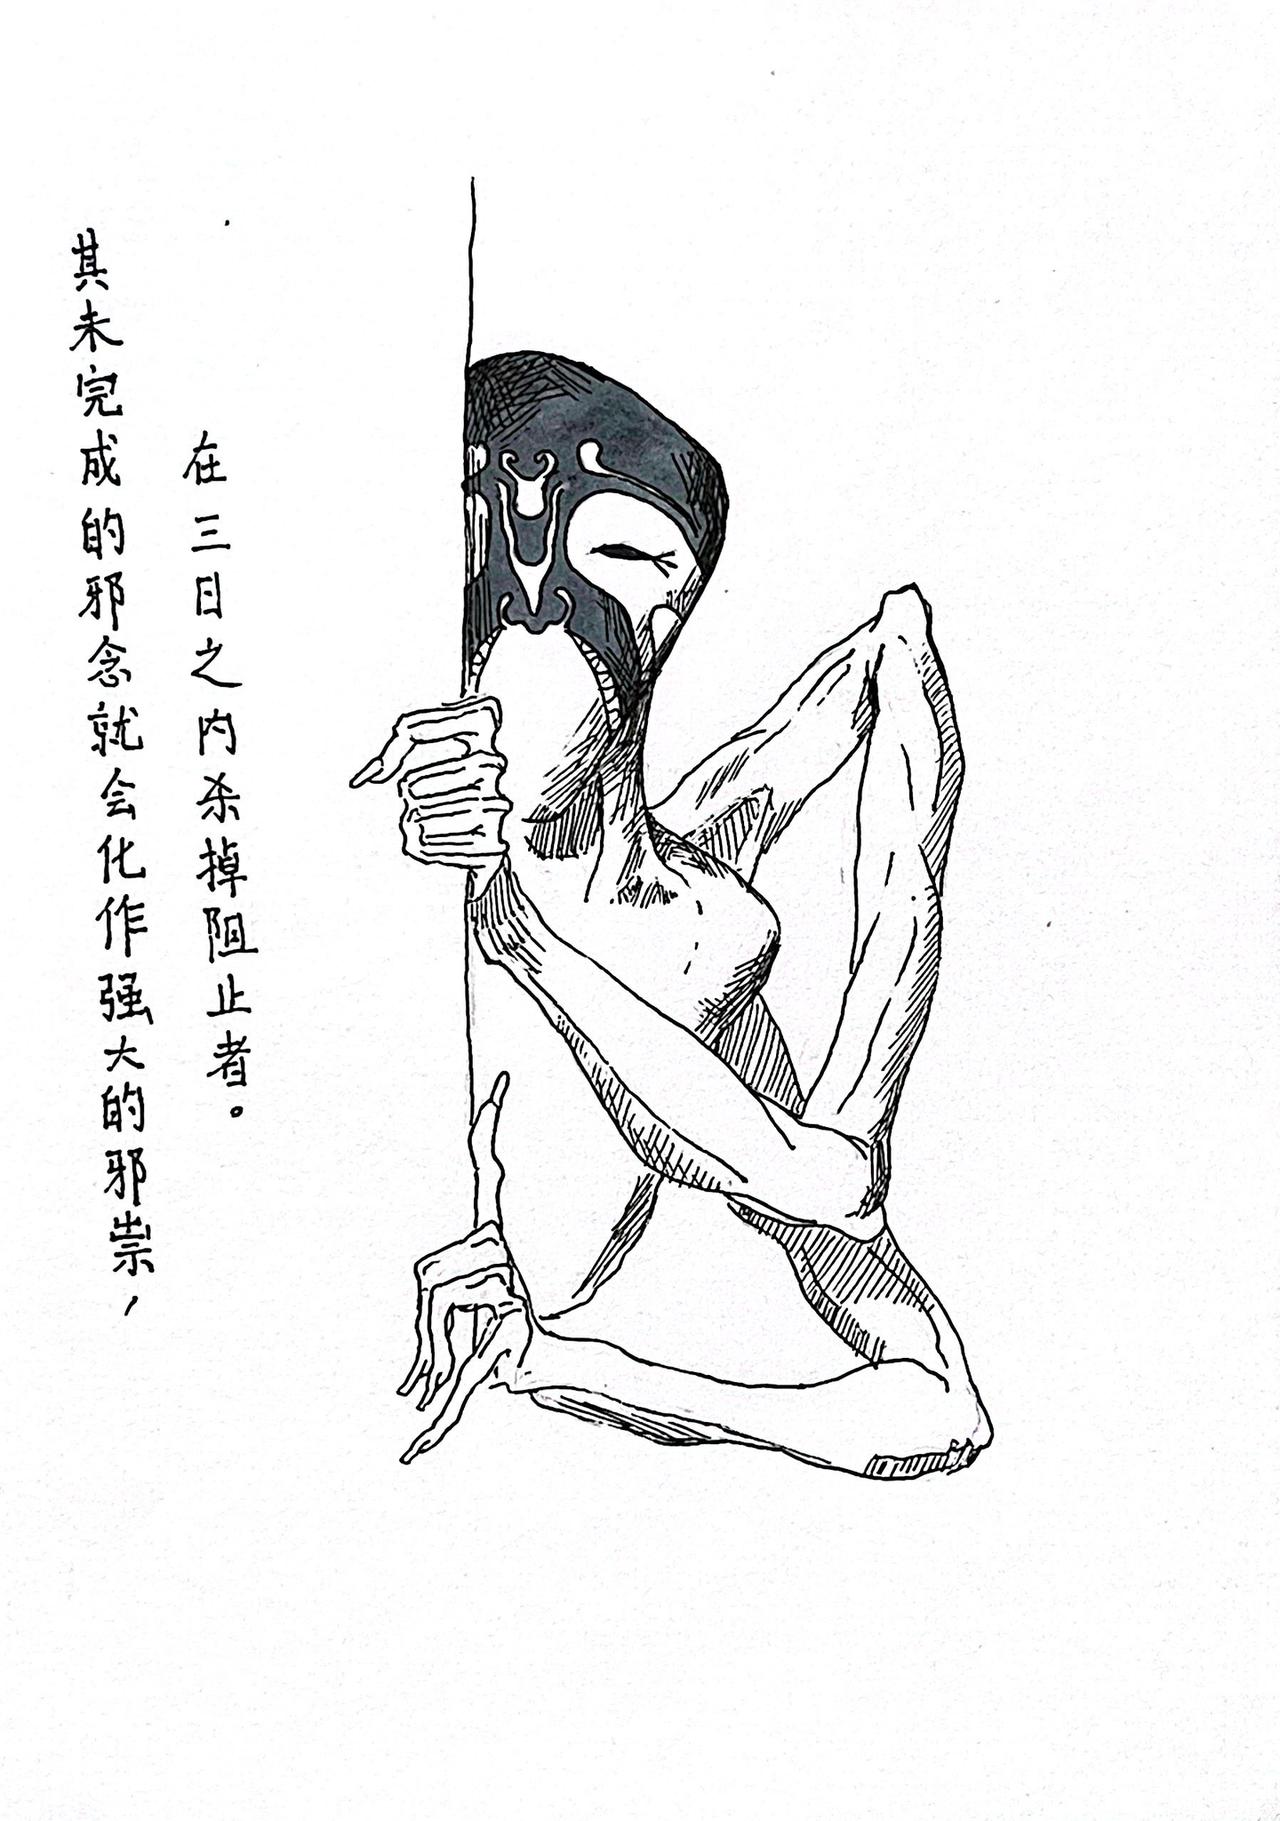 其未完成的邪念就会化作强大的邪祟，
在三日之内杀掉阻止者。